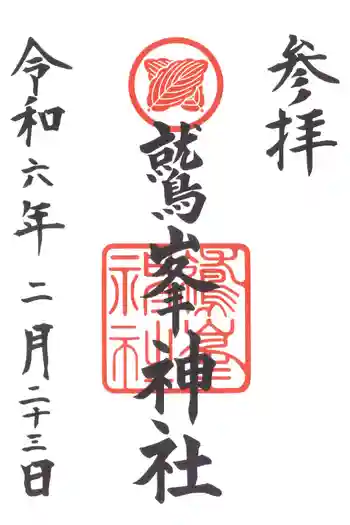 参拝
鷲峯神社
鷲峯神社
令和六年二月二十三日